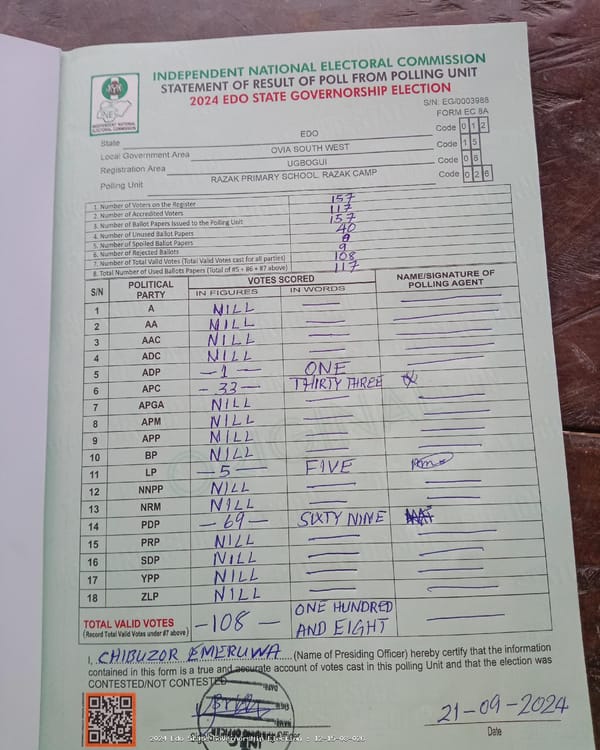 INDEPENDENT NATIONAL ELECTORAL COMMISSION
STATEMENT OF RESULT OF POLL FROM POLLING UNIT
2024 EDO STATE GOVERNORSHIP ELECTION
S/N: EG/0003988
FORM EC 8A
INDEPENDENT NATIONAL ELECTORAL COMMISSION
State EDO Code 0 1 2
Local Government Area OVIA SOUTH WEST Code 1 5
Registration Area UGBOGUI Code 0 8
Polling Unit RAZAK PRIMARY SCHOOL. RAZAK CAMP Code 0 2 6
1. Number of Voters on the Register 157
2. Number of Accredited Voters 117
3. Number of Ballot Papers Issued to the Polling Unit 157
4. Number of Unused Ballot Papers 40
5. Number of Spoiled Ballot Papers
6. Number of Rejected Ballots 9
7. Number of Total Valid Votes (Total Valid Votes cast for all parties) 108
8. Total Number of Used Ballots Papers (Total of #5 + #6 + #7 above) 117
S/N POLITICAL PARTY VOTES SCORED NAME/SIGNATURE OF POLLING AGENT
IN FIGURES IN WORDS
1 A NILL
2 AA NILL
3 AAC NILL
4 ADC NILL
5 ADP - 1 - ONE
6 APC - 33 - THIRTY THREE
7 APGA NILL
8 APM NILL
9 APP NILL
10 BP NILL
11 LP - 5 - FIVE
12 NNPP NILL
13 NRM NILL
14 PDP - 69 - SIXTY NINE
15 PRP NILL
16 SDP NILL
17 YPP NILL
18 ZLP NILL
TOTAL VALID VOTES - 108 - ONE HUNDRED
(Record Total Valid Votes under #7 above) AND EIGHT
I, CHIBUZOR EMERUWA (Name of Presiding Officer) hereby certify that the information
contained in this form is a true and accurate account of votes cast in this polling Unit and that the election was
CONTESTED/NOT CONTESTED
21-09-2024
Date
2024 Edo State Governorship Election : 12-15-08-026